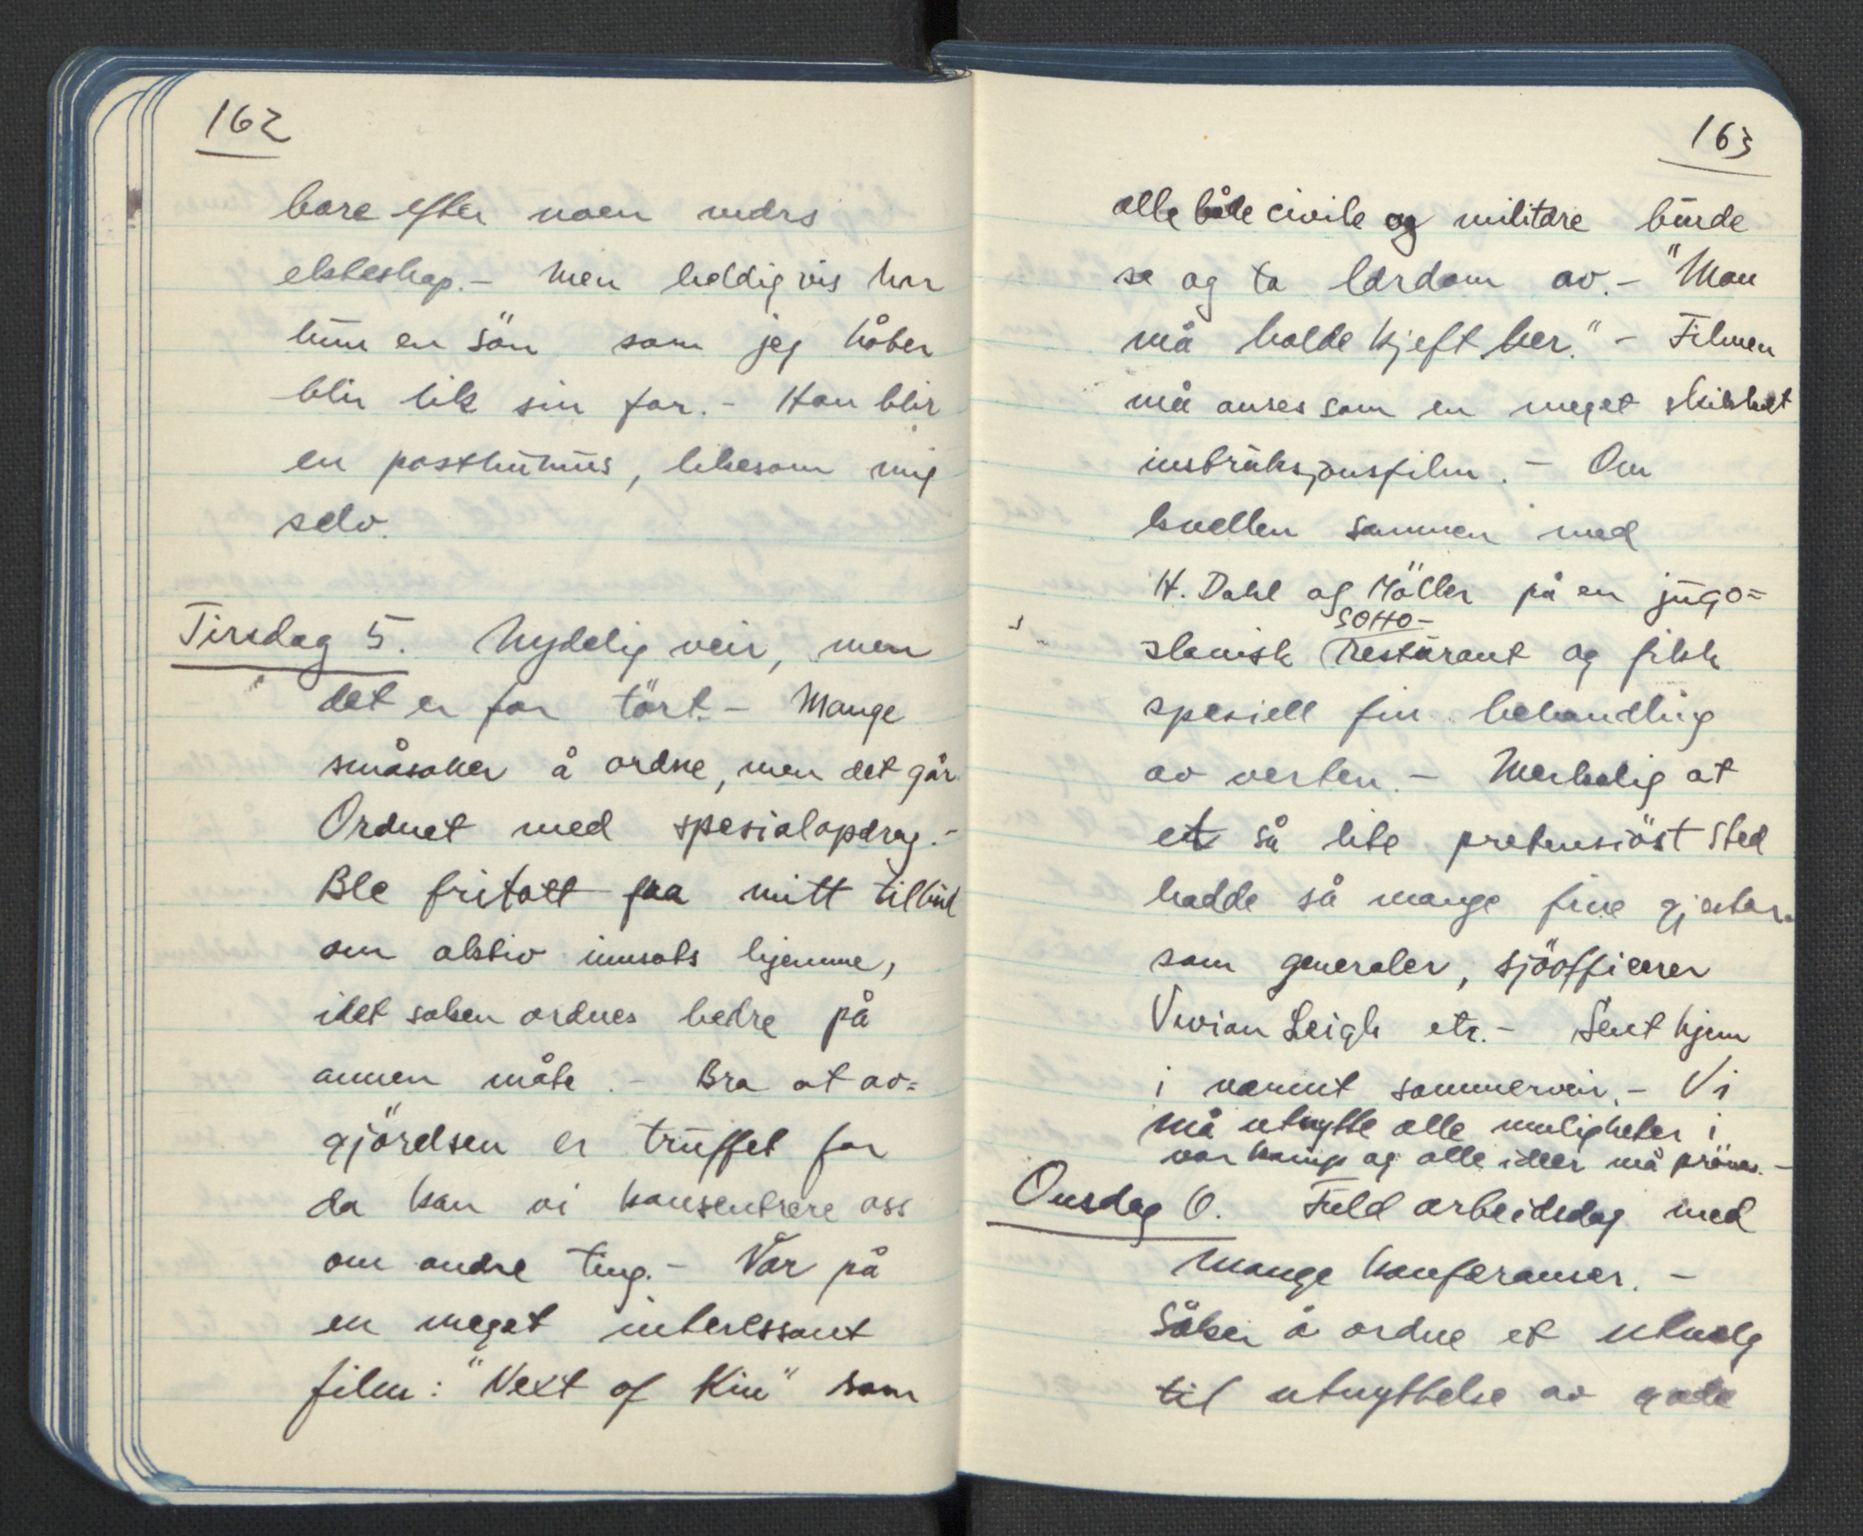 162
bare efter noen mdrs
ekteskap. – Men heldigvis har
hun en sön som jeg håber
blir lik sin far. – Han blir
en posthumus, likesom mig
selv.
Tirsdag 5. Nydelig veir, men
det er for tört. – Mange
småsaker å ordne, men det går
Ordnet med spesialopdrag. –
Ble fritatt fra mitt tilbud
om aktiv innsats hjemme,
idet saken ordnes bedre på
annen måte. – Bra at av=
gjörelsen er truffet for
da kan vi konsentrere oss
om andre ting. – Var på
en meget interessant
film: "Next of Kin" som
163
alle både civile og militære burde
se og ta lærdom av. – "Man
må holde kjeft her." – Filmen
må anses som en meget skikket
instruksjonsfilm. – Om
kvellen sammen med
H. Dahl og Möller på en jugo=
SOHO –
slavisk resturant og fikk
spesiell fin behandling
av verten. – Merkelig at
et så lite pretensiöst sted
hadde så mange fine gjester
som generaler, sjöofficerer
Vivian Leigh etc. – Sent hjem
i varmt sommerveir. – Vi
må utnytte alle muligheter i
vor kamp og alle ideer må pröves. –
Onsdag 6. Full arbeidsdag med
mange konferanser. –
Söker å ordne et utvalg
til utnyttelse av gode